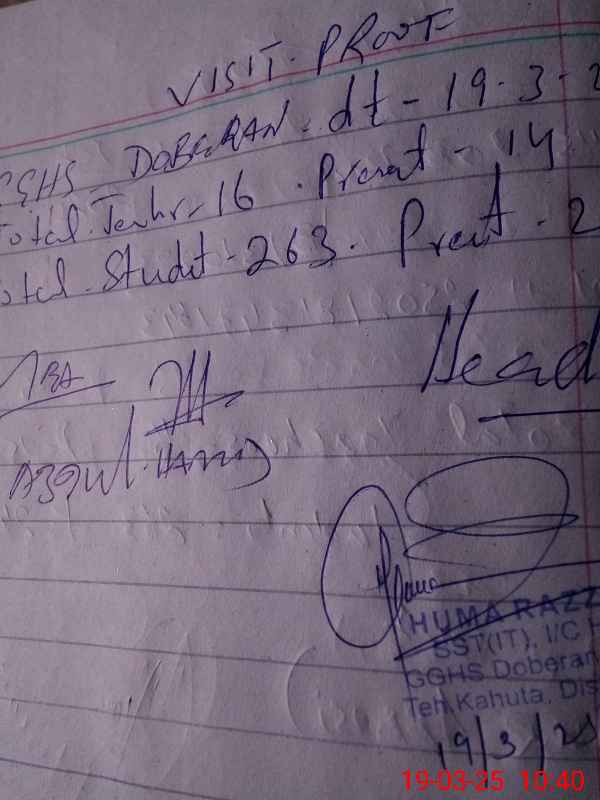 VISIT. PROOF
GGHS - DOBERAN. dt - 19.3.2
Total. Teachr - 16 . Present - 14
otal. Studet - 263. Presnt - 2
Head
ABDUL. HAMID
HUMA RAZZ
SST(IT), I/C H
GGHS Doberan
Teh Kahuta, Dis
19/3/25
19-03-25 10:40